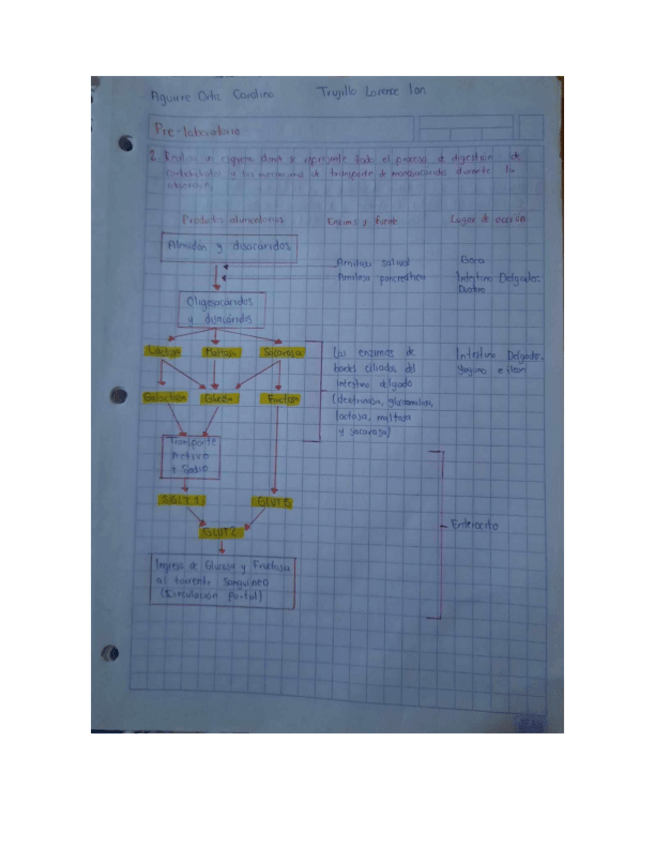 Aguirre Ortiz Carolina Trujillo Lorence Ian
Pre-laboratorio
2. Realizar un esquema donde se represente todo el proceso de digestión de
carbohidratos y los mecanismos de transporte de monosacáridos durante la
absorción
Productos alimenticios Enzima y fuente Lugar de acción
Almidón y disacáridos
Amilasa salival Boca
Amilasa pancreática Intestino Delgado-
Oligosacáridos
y disacáridos
Lactosa Maltosa Sacarosa
Las enzimas de
bordes ciliados del
intestino delgado
lactasa, maltasa
y sacarasa)
Intestino Delgado-
Yeyuno e ileon
Galactosa Glucosa Fructosa
Transporte
Activo
+ Sodio
SGLT1 GLUT5
GLUT2
Enterocito
Ingreso de Glucosa y Fructosa
al torrente sanguineo
(Circulación portal)